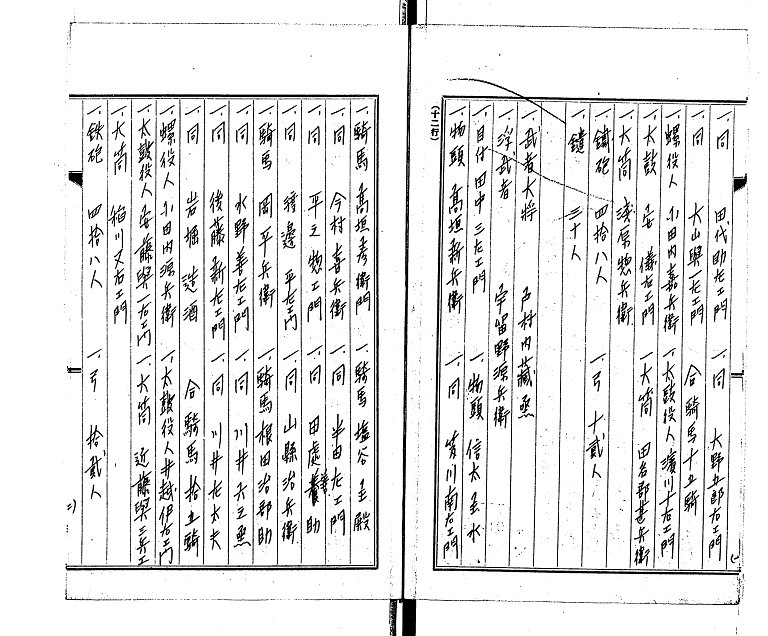 一、同 田代助左エ門 一、同 大野五郎右エ門
一、同 大山與一左エ門 合騎馬十五騎
一、螺役人 小田内嘉兵衛 一、太鼓役人 濱川十右エ門
一、太鼓 安儀右エ門 一、大筒 田名部甚兵衛
一、大筒 浅原惣兵衛
一、鐵砲 四拾八人 一、弓 十貳人
一、鑓 三十人
一、武者大将 戸村内藏丞
一、浮武者 宇留野源兵衛
一、目付 田中三左エ門 一、物頭 信太主水
一、物頭 高垣新兵衛 一、同 笈川南右エ門
(十二行)
一、騎馬 高垣彦衛門 一、騎馬 塩谷主殿
一、同 今村喜兵衛 一、同 半田左エ門
一、同 平之惣エ門 一、同 田處養助
一、同 渡邊平左エ門 一、同 山縣治兵衛
一、騎馬 岡平兵衛 一、騎馬 根田治部助
一、同 水野善左エ門 一、同 川井久之丞
一、同 後藤新左エ門 一、同 川井左太夫
一、同 岩堀造酒 合騎馬拾五騎
一、螺役人 小田内源兵衛 一、太鼓役人 井越伊右エ門
一、太鼓役人 安藤與一右エ門 一、大筒 近藤與三兵エ
一、大筒 稲川又右エ門
一、鉄砲 四拾八人 一、弓 拾貳人